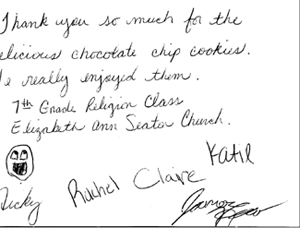 Thank you so much for the
elicious chocolate chip cookies.
e really enjoyed them.
7th Grade Religion Class
Elizabeth Ann Seaton Church.
Katie
Rachel Claire
Ricky